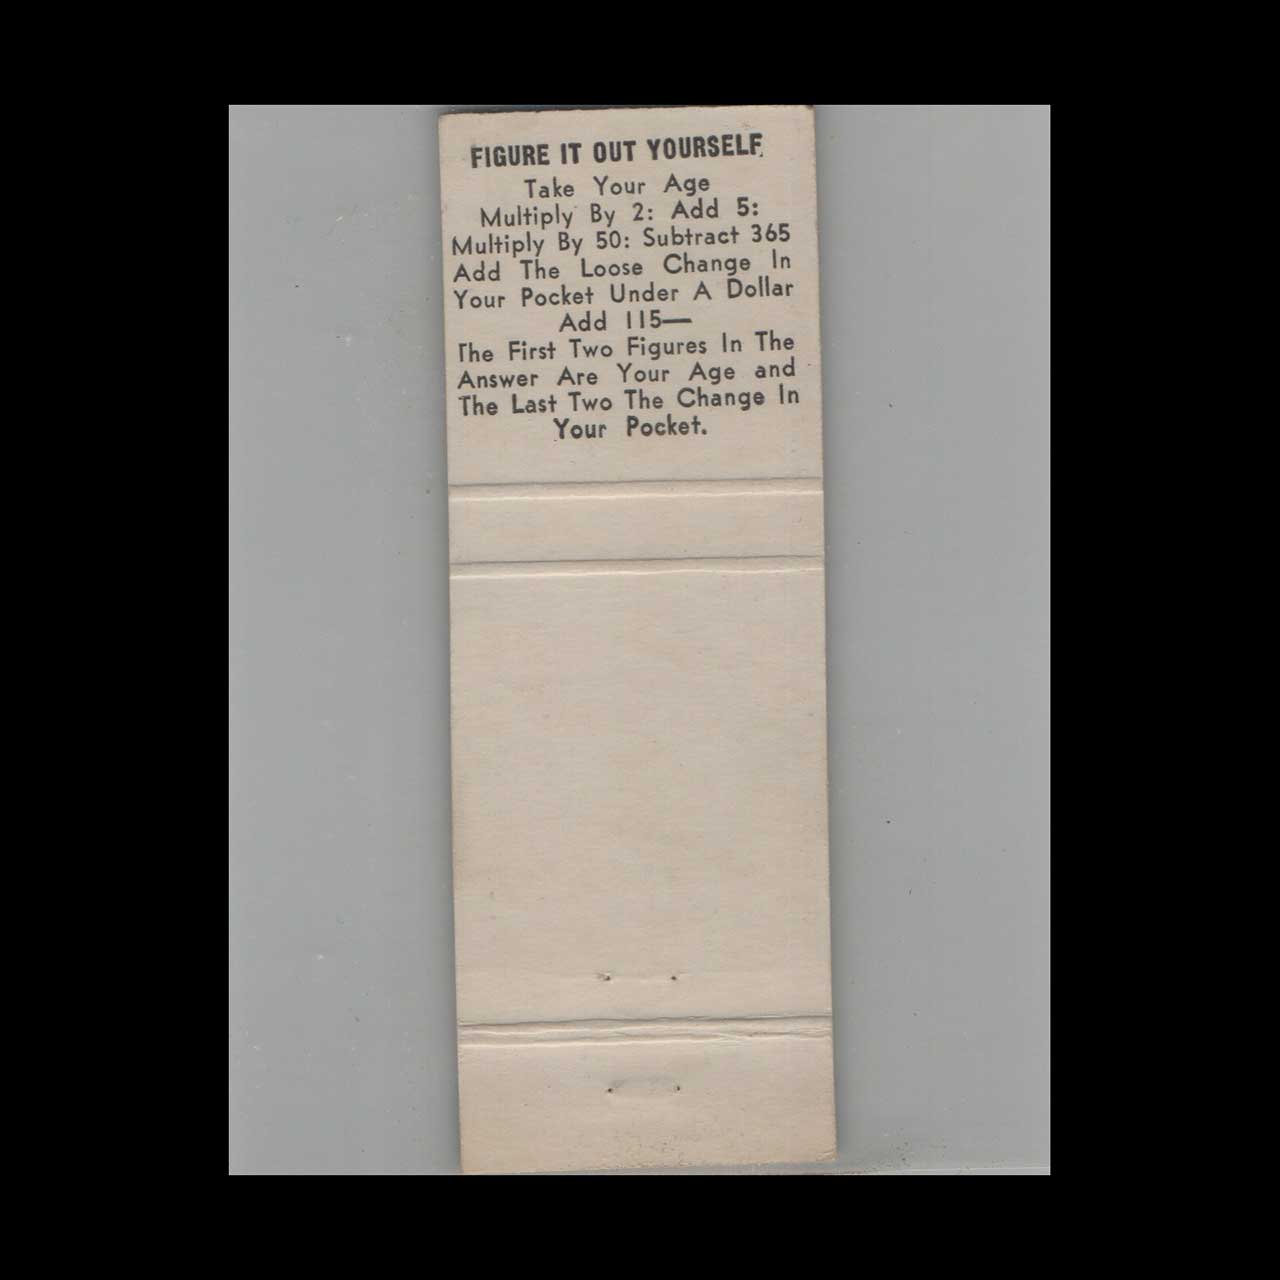 FIGURE IT OUT YOURSELF
Take Your Age
Multiply By 2: Add 5:
Multiply By 50: Subtract 365
Add The Loose Change In
Your Pocket Under A Dollar
Add 115—
The First Two Figures In The
Answer Are Your Age and
The Last Two The Change In
Your Pocket.